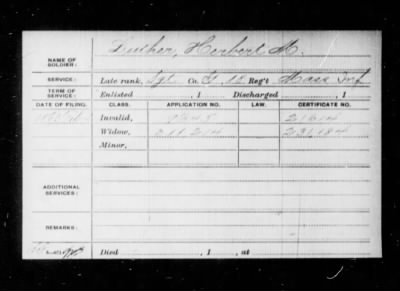 NAME OF SOLDIER: Luther, Herbert M.
SERVICE: Late rank, Sgt Co. G, 15 Reg't Mass Inf
TERM OF SERVICE: Enlisted , 1 Discharged , 1
DATE OF FILING. CLASS. APPLICATION NO. LAW. CERTIFICATE NO.
Invalid, 21614
Widow, 211,214 231,184
Minor,
ADDITIONAL SERVICES:
REMARKS:
Died , 1 , at